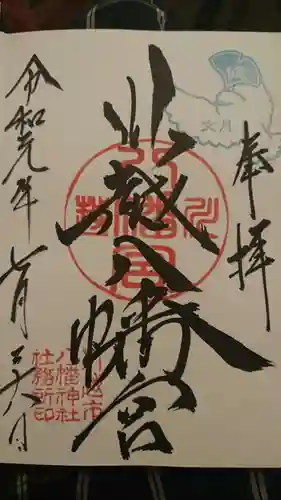 奉拝
文月
川越八幡宮
川越
八幡宮
令和元年七月二十八日
川越市
八幡神社
社務所印